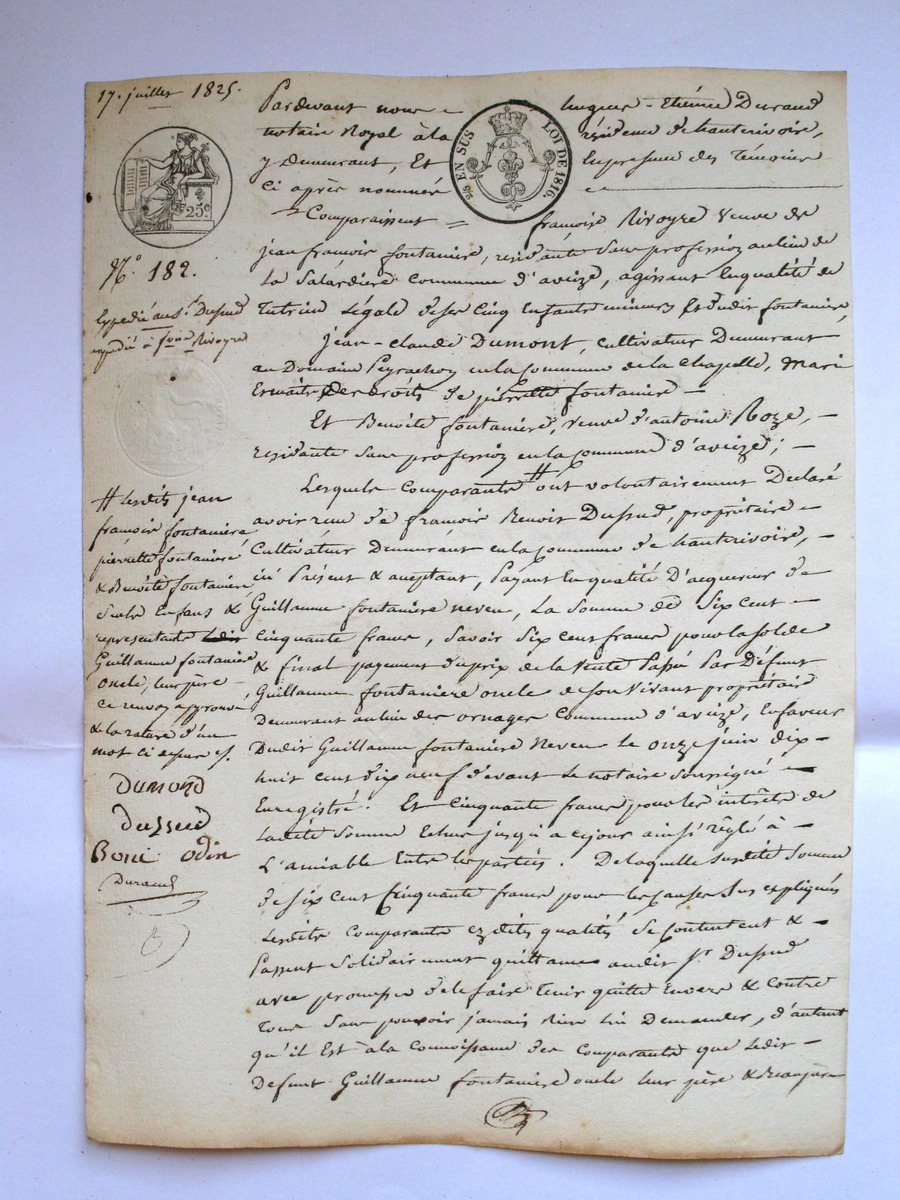 17. juillet 1825.
25c
N.° 182.
Expédié au S.r Dussud
expédié à f.oise Rivoyre
2/5 EN SUS
LOI DE 1816.
Pardevant nous hugues-Etienne Durand
notaire Royal à la résidence de hauterivoire,
y demeurant, Et En presence des Témoins
Ci après nommés
Comparaissent françoise Rivoyre Veuve de
jean françois fontaniere, residante Sans profession au lieu de
La Salardiere Commune d'aveize, agissant En qualité de
Tutrice Légale de ses Cinq Enfants mineurs Et dudit fontaniere,
jean-claude Dumont, Cultivateur Demeurant
au Domaine Peyrachon en la Commune de la Chapelle, Mari
Et maitre des droits de pierrette fontaniere
Et Benoite fontaniere, Veuve d'antoine Roze,
residante Sans profession en la Commune d'aveize;
Lesquels Comparants # ont volontairement Déclaré
avoir reçu de françois Benoit Dussud, propriétaire
Cultivateur Demeurant en la Commune de hauterivoire,
ici Présent & acceptant, Payant En qualité D'acquereur de
Guillaume fontaniere neveu, La Somme de Six Cent
Cinquante francs, Savoir Six Cent francs pour la solde
& final payement du prix de la Vente Passée Par Défunt
Guillaume fontaniere oncle de Son Vivant propriétaire
Demeurant au lieu des ornages Commune d'aveize, En faveur
Dudit Guillaume fontaniere Neveu Le onze juin dix-
huit Cent dix neuf devant Le notaire Soussigné
Enregistré. Et Cinquante francs pour les intérêts de
Ladite Somme Echus jusqu'à ce jour ainsi réglé à
L'amiable Entre les parties. De laquelle susdite Somme
de six cent Cinquante francs pour les Causes Sus expliquées
Lesdits Comparants ezdites qualités Se Contentent &
Passent Solidairement quittance audit S.r Dussud
avec promesse de le faire Tenir quitte Envers & Contre
Tous Sans pouvoir jamais Rien lui Demander, d'autant
qu'il Est à la Connoissance des Comparants que Ledit
Defunt Guillaume fontaniere oncle leur père & Beaupère
# Lesdits jean
françois fontaniere,
pierrette fontaniere
& Benoite fontaniere,
Seuls Enfans &
representants Ledit
Guillaume fontaniere
oncle, leur père
Ce renvoy approuvé
& la rature d'un
mot Ci dessus
Dumond
Dussud
odin
Durand